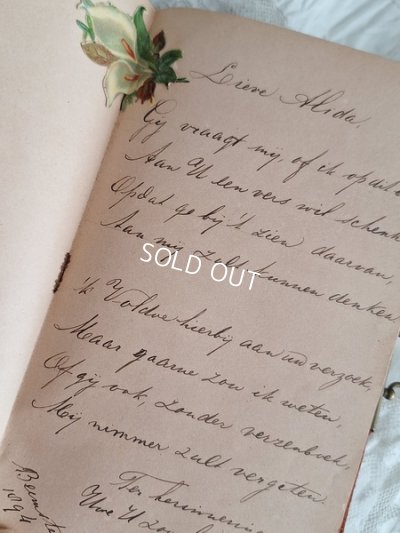 Lieve Alida.
Gij vraagt mij, of ik op dit
Aan U een vers wil schenken
Opdat ge bij 't zien daarvan,
Aan mij zult kunnen denken.
SOLD OUT
'k Voldoe hierbij aan uw verzoek,
Maar gaarne zou ik weten,
Of gij ook, zonder verzenboek,
Mij nimmer zult vergeten.
Ter herinnering
Uwe U